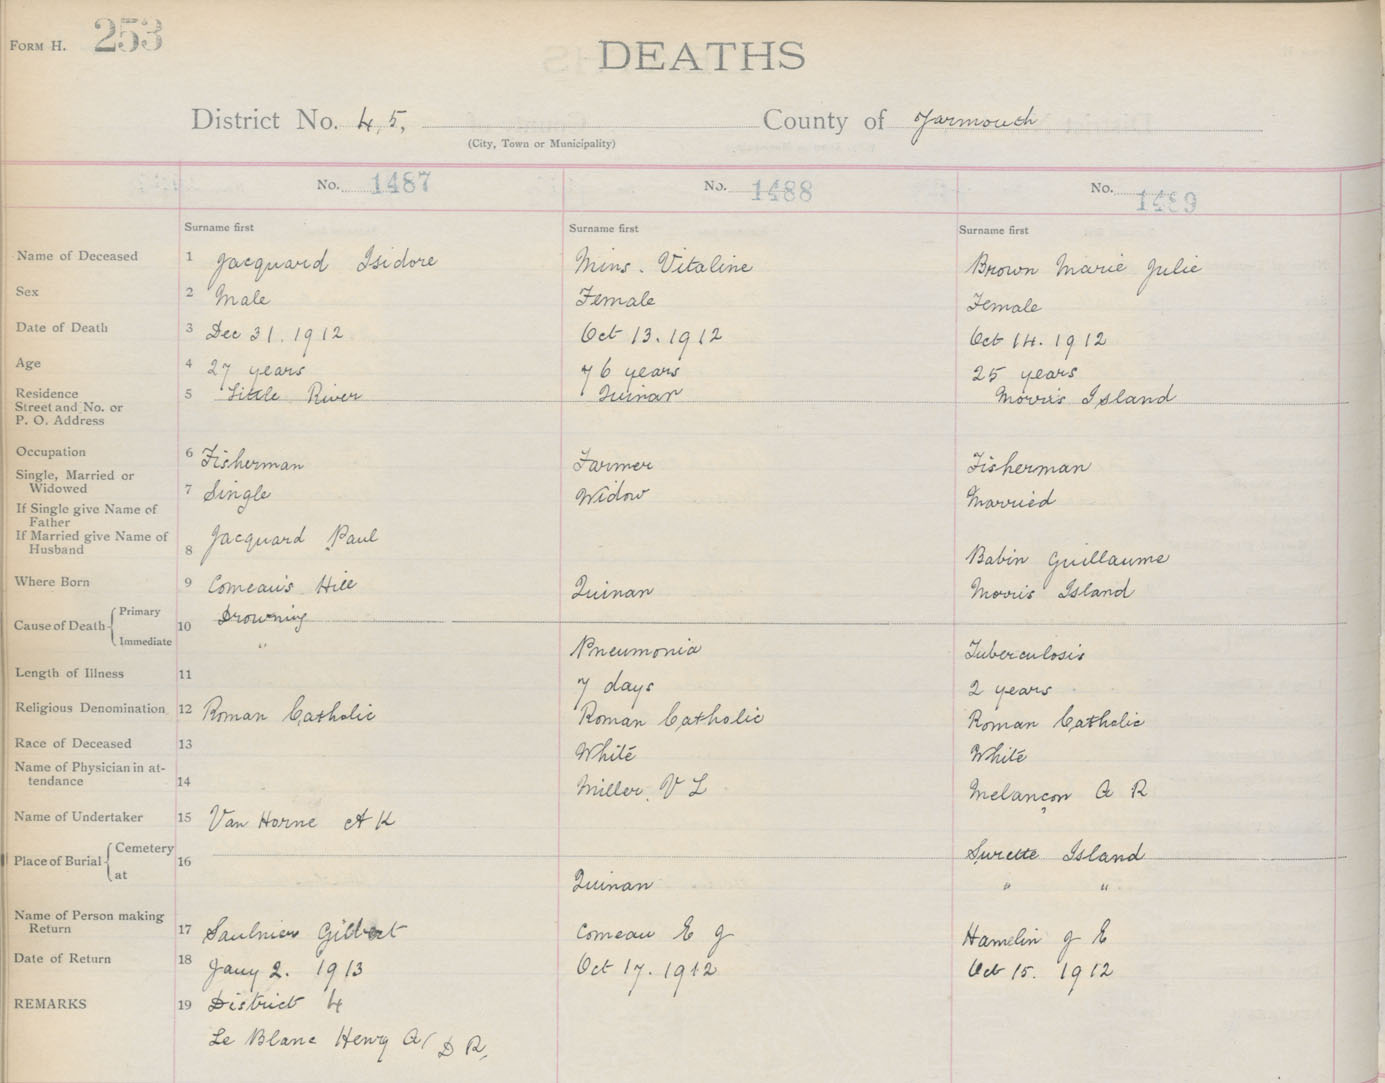 FORM H. 253
DEATHS
District No. 4, 5, County of Yarmouth
(City, Town or Municipality)
No. 1487 No. 1488 No. 1489
Surname first Surname first Surname first
Name of Deceased 1 Jacquard Isidore Mins. Vitaline Brown Marie Julie
Sex 2 Male Female Female
Date of Death 3 Dec 31. 1912 Oct 13. 1912 Oct 14. 1912
Age 4 27 years 76 years 25 years
Residence 5 Little River Quinan Morris Island
Street and No. or
P. O. Address
Occupation 6 Fisherman Farmer Fisherman
Single, Married or
Widowed 7 Single Widow Married
If Single give Name of
Father
If Married give Name of Jacquard Paul
Husband 8 Babin Guillaume
Where Born 9 Comeau's Hill Quinan Morris Island
Cause of Death Primary 10 Drowning
Immediate " Pneumonia Tuberculosis
Length of Illness 11 7 days 2 years
Religious Denomination 12 Roman Catholic Roman Catholic Roman Catholic
Race of Deceased 13 White White
Name of Physician in at-
tendance 14 Miller. V L Melançon A R
Name of Undertaker 15 Van Horne A K
Place of Burial Cemetery 16 Surette Island
at Quinan " "
Name of Person making
Return 17 Saulnier Gilbert Comeau E J Hamelin J E
Date of Return 18 Jany 2. 1913 Oct 17. 1912 Oct 15. 1912
REMARKS 19 District 4
Le Blanc Henry A/ D R,